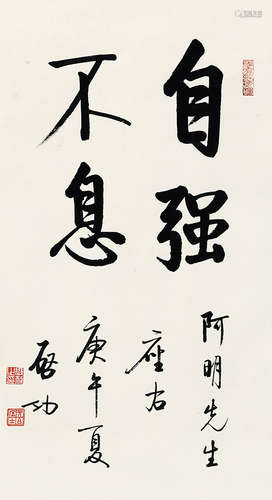 自强
不息
阿明先生
座右
庚午夏
启功